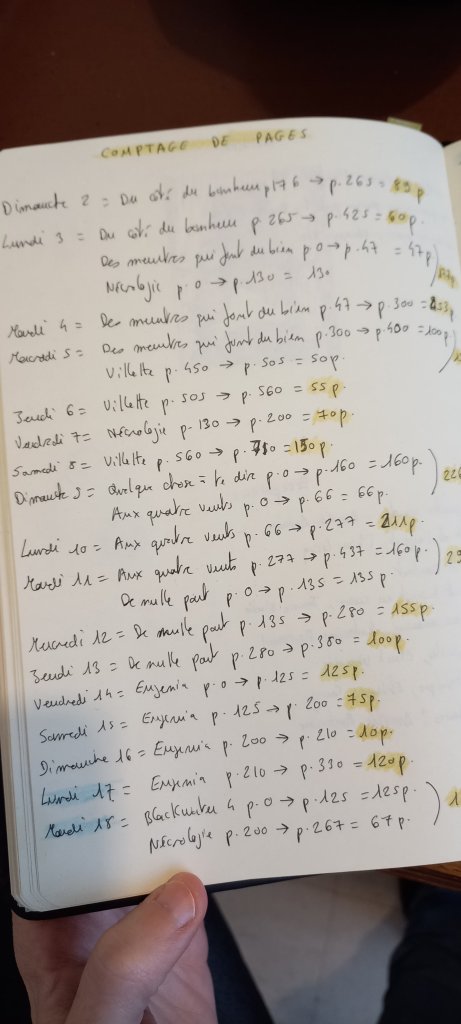 COMPTAGE DE PAGES
Dimanche 2 = Du côté du bonheur p176 → p.265 = 89 p
Lundi 3 = Du côté du bonheur p.265 → p.425 = 60 p.
Des meurtres qui font du bien p.0 → p.47 = 47p
Nécrologie p.0 → p.130 = 130
Mardi 4 = Des meurtres qui font du bien p.47 → p.300 = 253p
Mercredi 5 = Des meurtres qui font du bien p.300 → p.400 = 100p
Villette p.450 → p.505 = 50p.
Jeudi 6 = Villette p.505 → p.560 = 55 p.
Vendredi 7 = Nécrologie p.130 → p.200 = 70p.
Samedi 8 = Villette p.560 → p. = 150p
Dimanche 9 = Quelque chose à te dire p.0 → p.160 = 160p. 226
Aux quatre vents p.0 → p.66 = 66p.
Lundi 10 = Aux quatre vents p.66 → p.277 = 211p.
Mardi 11 = Aux quatre vents p.277 → p.437 = 160p. 29
De nulle part p.0 → p.135 = 135p.
Mercredi 12 = De nulle part p.135 → p.280 = 155p.
Jeudi 13 = De nulle part p.280 → p.380 = 100p.
Vendredi 14 = Eugenia p.0 → p.125 = 125p.
Samedi 15 = Eugenia p.125 → p.200 = 75p.
Dimanche 16 = Eugenia p.200 → p.210 = 10p.
Lundi 17 = Eugenia p.210 → p.330 = 120p.
Mardi 18 = Blackwater 4 p.0 → p.125 = 125p. 1
Nécrologie p.200 → p.267 = 67 p.